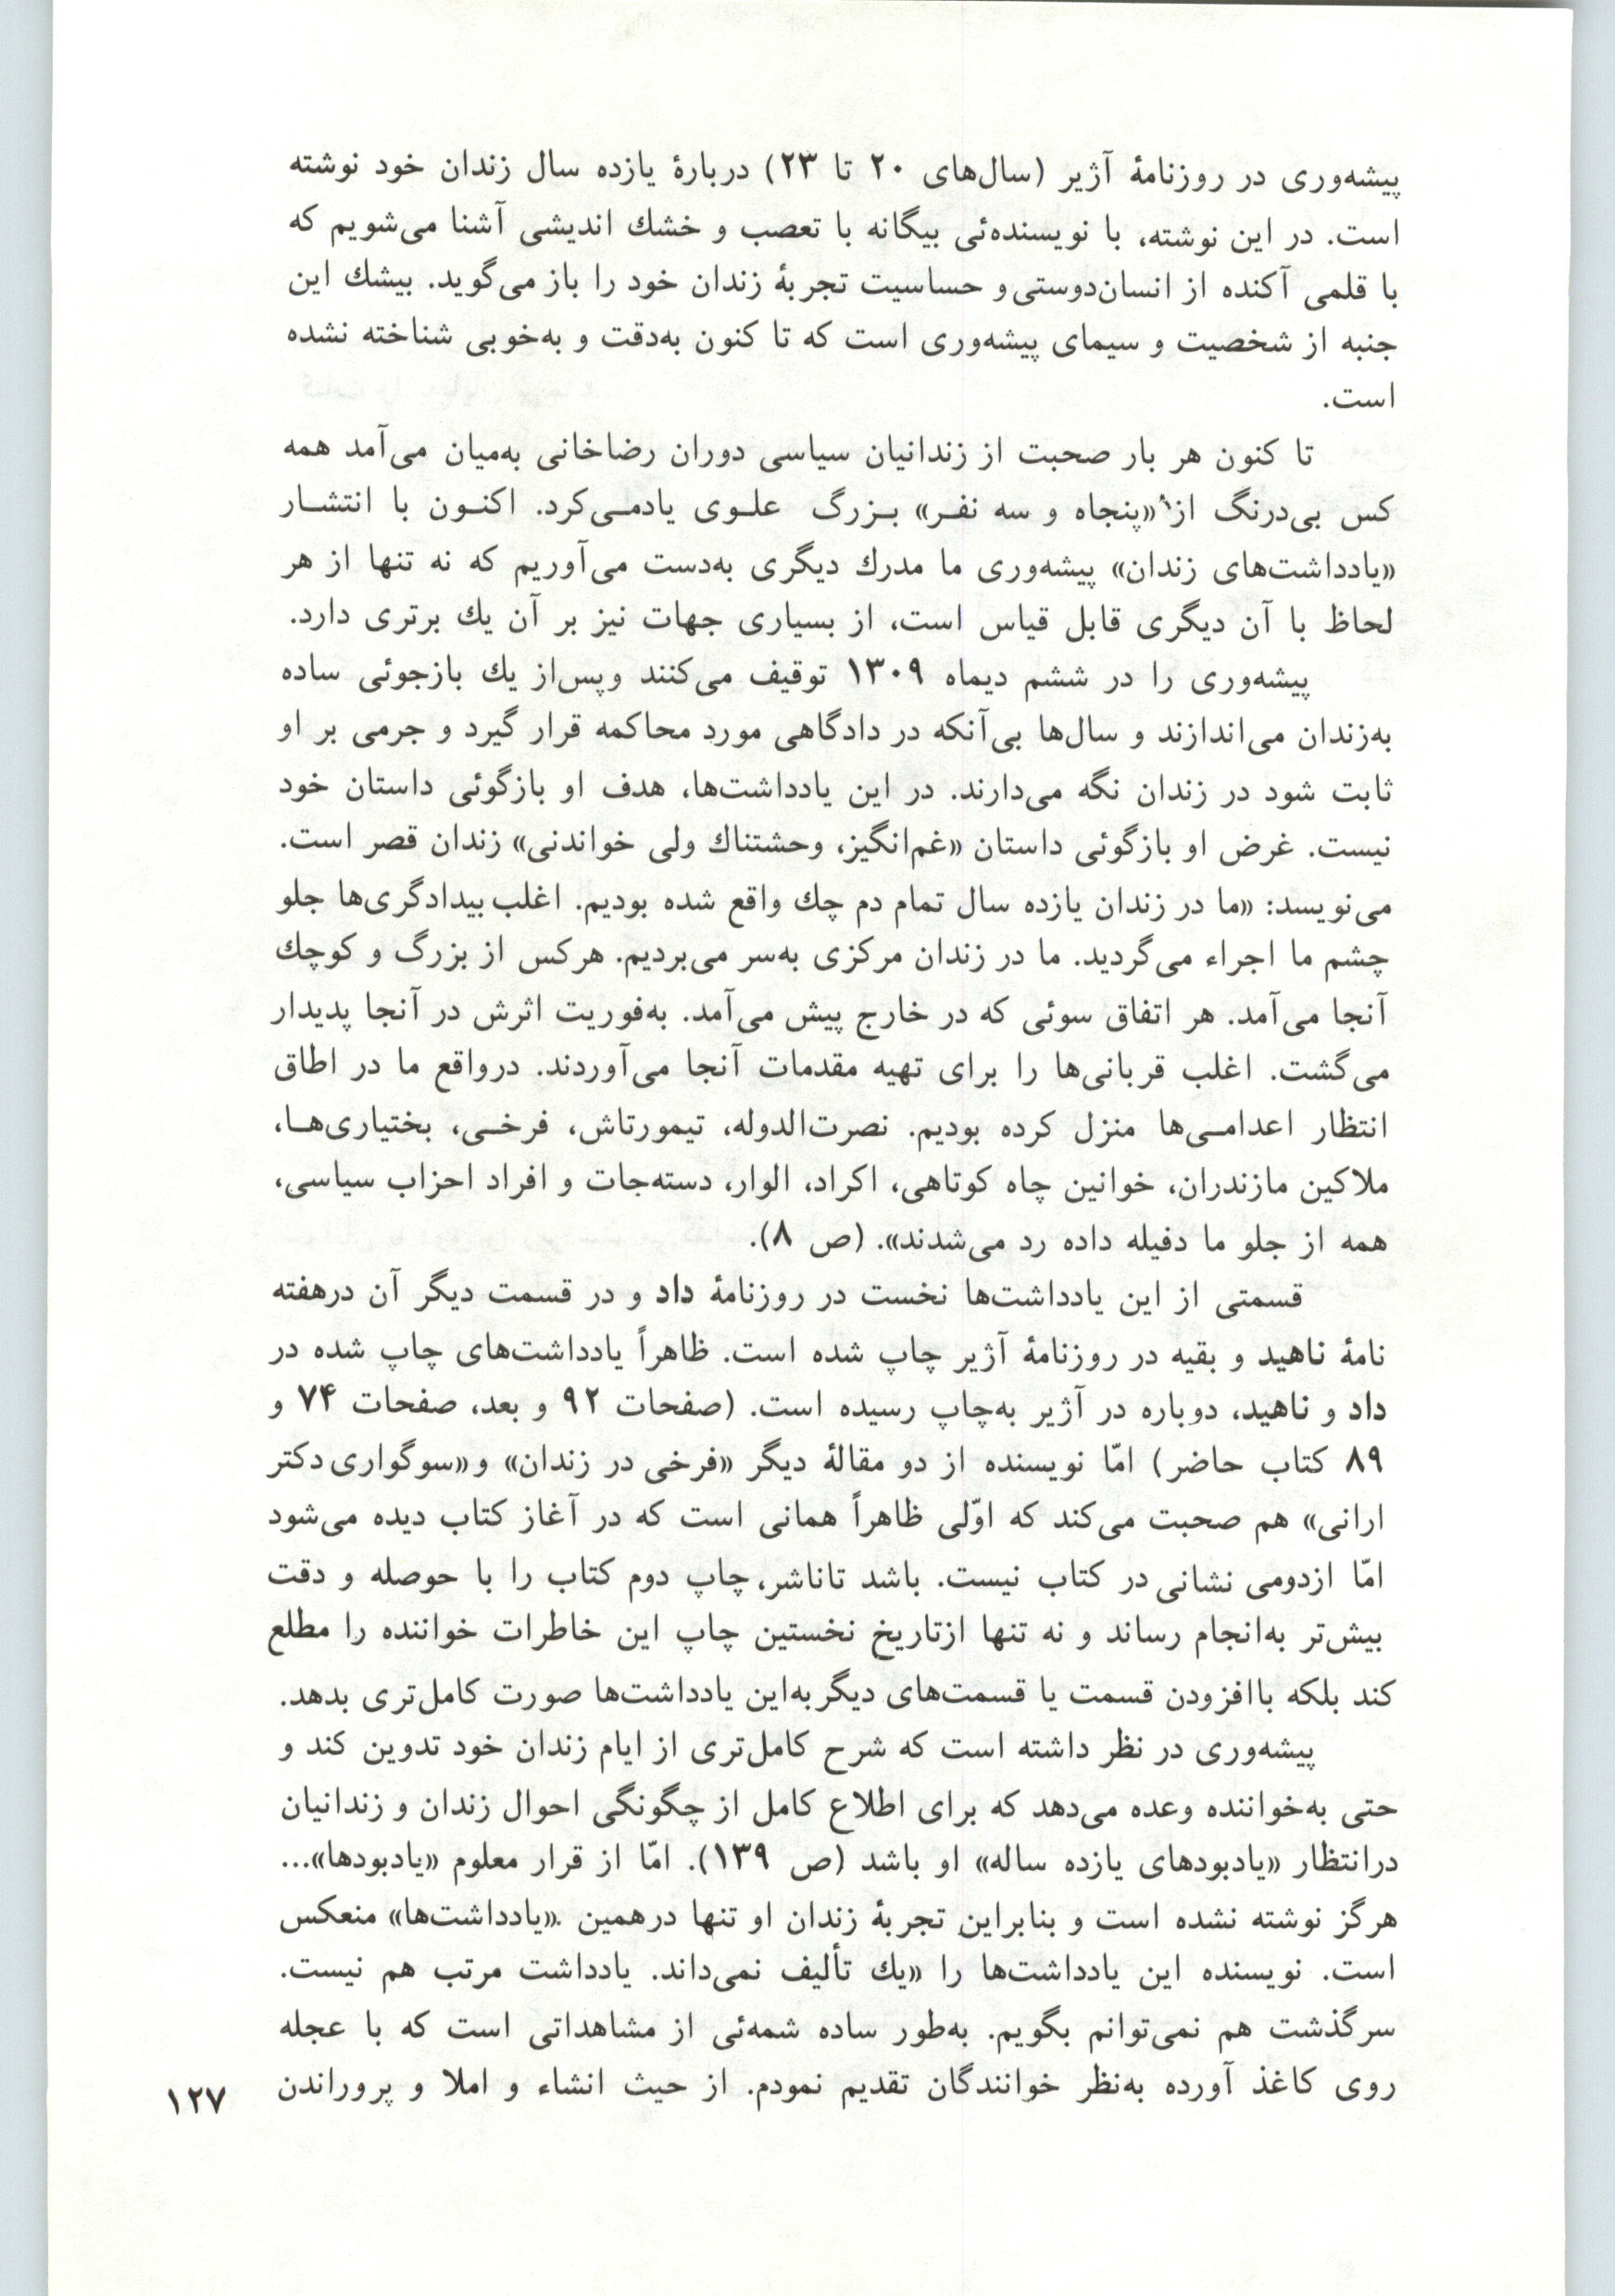 پیشه‌وری در روزنامهٔ آژیر (سال‌های ۲۰ تا ۲۳) دربارهٔ یازده سال زندان خود نوشته
است. در این نوشته، با نویسنده‌ئی بیگانه با تعصب و خشك اندیشی آشنا می‌شویم که
با قلمی آکنده از انسان‌دوستی و حساسیت تجربهٔ زندان خود را باز می‌گوید. بیشك این
جنبه از شخصیت و سیمای پیشه‌وری است که تا کنون به‌دقت و به‌خوبی شناخته نشده
است.
تا کنون هر بار صحبت از زندانیان سیاسی دوران رضاخانی به‌میان می‌آمد همه
کس بی‌درنگ از «پنجاه و سه نفـر» بـزرگ علـوی یادمـی‌کرد. اکنـون با انتشـار
«یادداشت‌های زندان» پیشه‌وری ما مدرك دیگری به‌دست می‌آوریم که نه تنها از هر
لحاظ با آن دیگری قابل قیاس است، از بسیاری جهات نیز بر آن یك برتری دارد.
پیشه‌وری را در ششم دیماه ۱۳۰۹ توقیف می‌کنند وپس‌از یك بازجوئی ساده
به‌زندان می‌اندازند و سال‌ها بی‌آنکه در دادگاهی مورد محاکمه قرار گیرد و جرمی بر او
ثابت شود در زندان نگه می‌دارند. در این یادداشت‌ها، هدف او بازگوئی داستان خود
نیست. غرض او بازگوئی داستان «غم‌انگیز، وحشتناك ولی خواندنی» زندان قصر است.
می‌نویسد: «ما در زندان یازده سال تمام دم چك واقع شده بودیم. اغلب بیدادگری‌ها جلو
چشم ما اجراء می‌گردید. ما در زندان مرکزی به‌سر می‌بردیم. هرکس از بزرگ و کوچك
آنجا می‌آمد. هر اتفاق سوئی که در خارج پیش می‌آمد. به‌فوریت اثرش در آنجا پدیدار
می‌گشت. اغلب قربانی‌ها را برای تهیه مقدمات آنجا می‌آوردند. درواقع ما در اطاق
انتظار اعدامـی‌ها منزل کرده بودیم. نصرت‌الدوله، تیمورتاش، فرخـی، بختیاری‌هـا،
ملاکین مازندران، خوانین چاه کوتاهی، اکراد، الوار، دسته‌جات و افراد احزاب سیاسی،
همه از جلو ما دفیله داده رد می‌شدند». (ص ۸).
قسمتی از این یادداشت‌ها نخست در روزنامهٔ داد و در قسمت دیگر آن درهفته
نامهٔ ناهید و بقیه در روزنامهٔ آژیر چاپ شده است. ظاهراً یادداشت‌های چاپ شده در
داد و ناهید، دوباره در آژیر به‌چاپ رسیده است. (صفحات ۹۲ و بعد، صفحات ۷۴ و
۸۹ کتاب حاضر) امّا نویسنده از دو مقالهٔ دیگر «فرخی در زندان» و«سوگواری دکتر
ارانی» هم صحبت می‌کند که اوّلی ظاهراً همانی است که در آغاز کتاب دیده می‌شود
امّا ازدومی نشانی در کتاب نیست. باشد تاناشر، چاپ دوم کتاب را با حوصله و دقت
بیش‌تر به‌انجام رساند و نه تنها ازتاریخ نخستین چاپ این خاطرات خواننده را مطلع
کند بلکه باافزودن قسمت یا قسمت‌های دیگربه‌این یادداشت‌ها صورت کامل‌تری بدهد.
پیشه‌وری در نظر داشته است که شرح کامل‌تری از ایام زندان خود تدوین کند و
حتی به‌خواننده وعده می‌دهد که برای اطلاع کامل از چگونگی احوال زندان و زندانیان
درانتظار «یادبودهای یازده ساله» او باشد (ص ۱۳۹). امّا از قرار معلوم «یادبودها»...
هرگز نوشته نشده است و بنابراین تجربهٔ زندان او تنها درهمین «یادداشت‌ها» منعکس
است. نویسنده این یادداشت‌ها را «یك تألیف نمی‌داند. یادداشت مرتب هم نیست.
سرگذشت هم نمی‌توانم بگویم. به‌طور ساده شمه‌ئی از مشاهداتی است که با عجله
روی کاغذ آورده به‌نظر خوانندگان تقدیم نمودم. از حیث انشاء و املا و پروراندن
۱۲۷